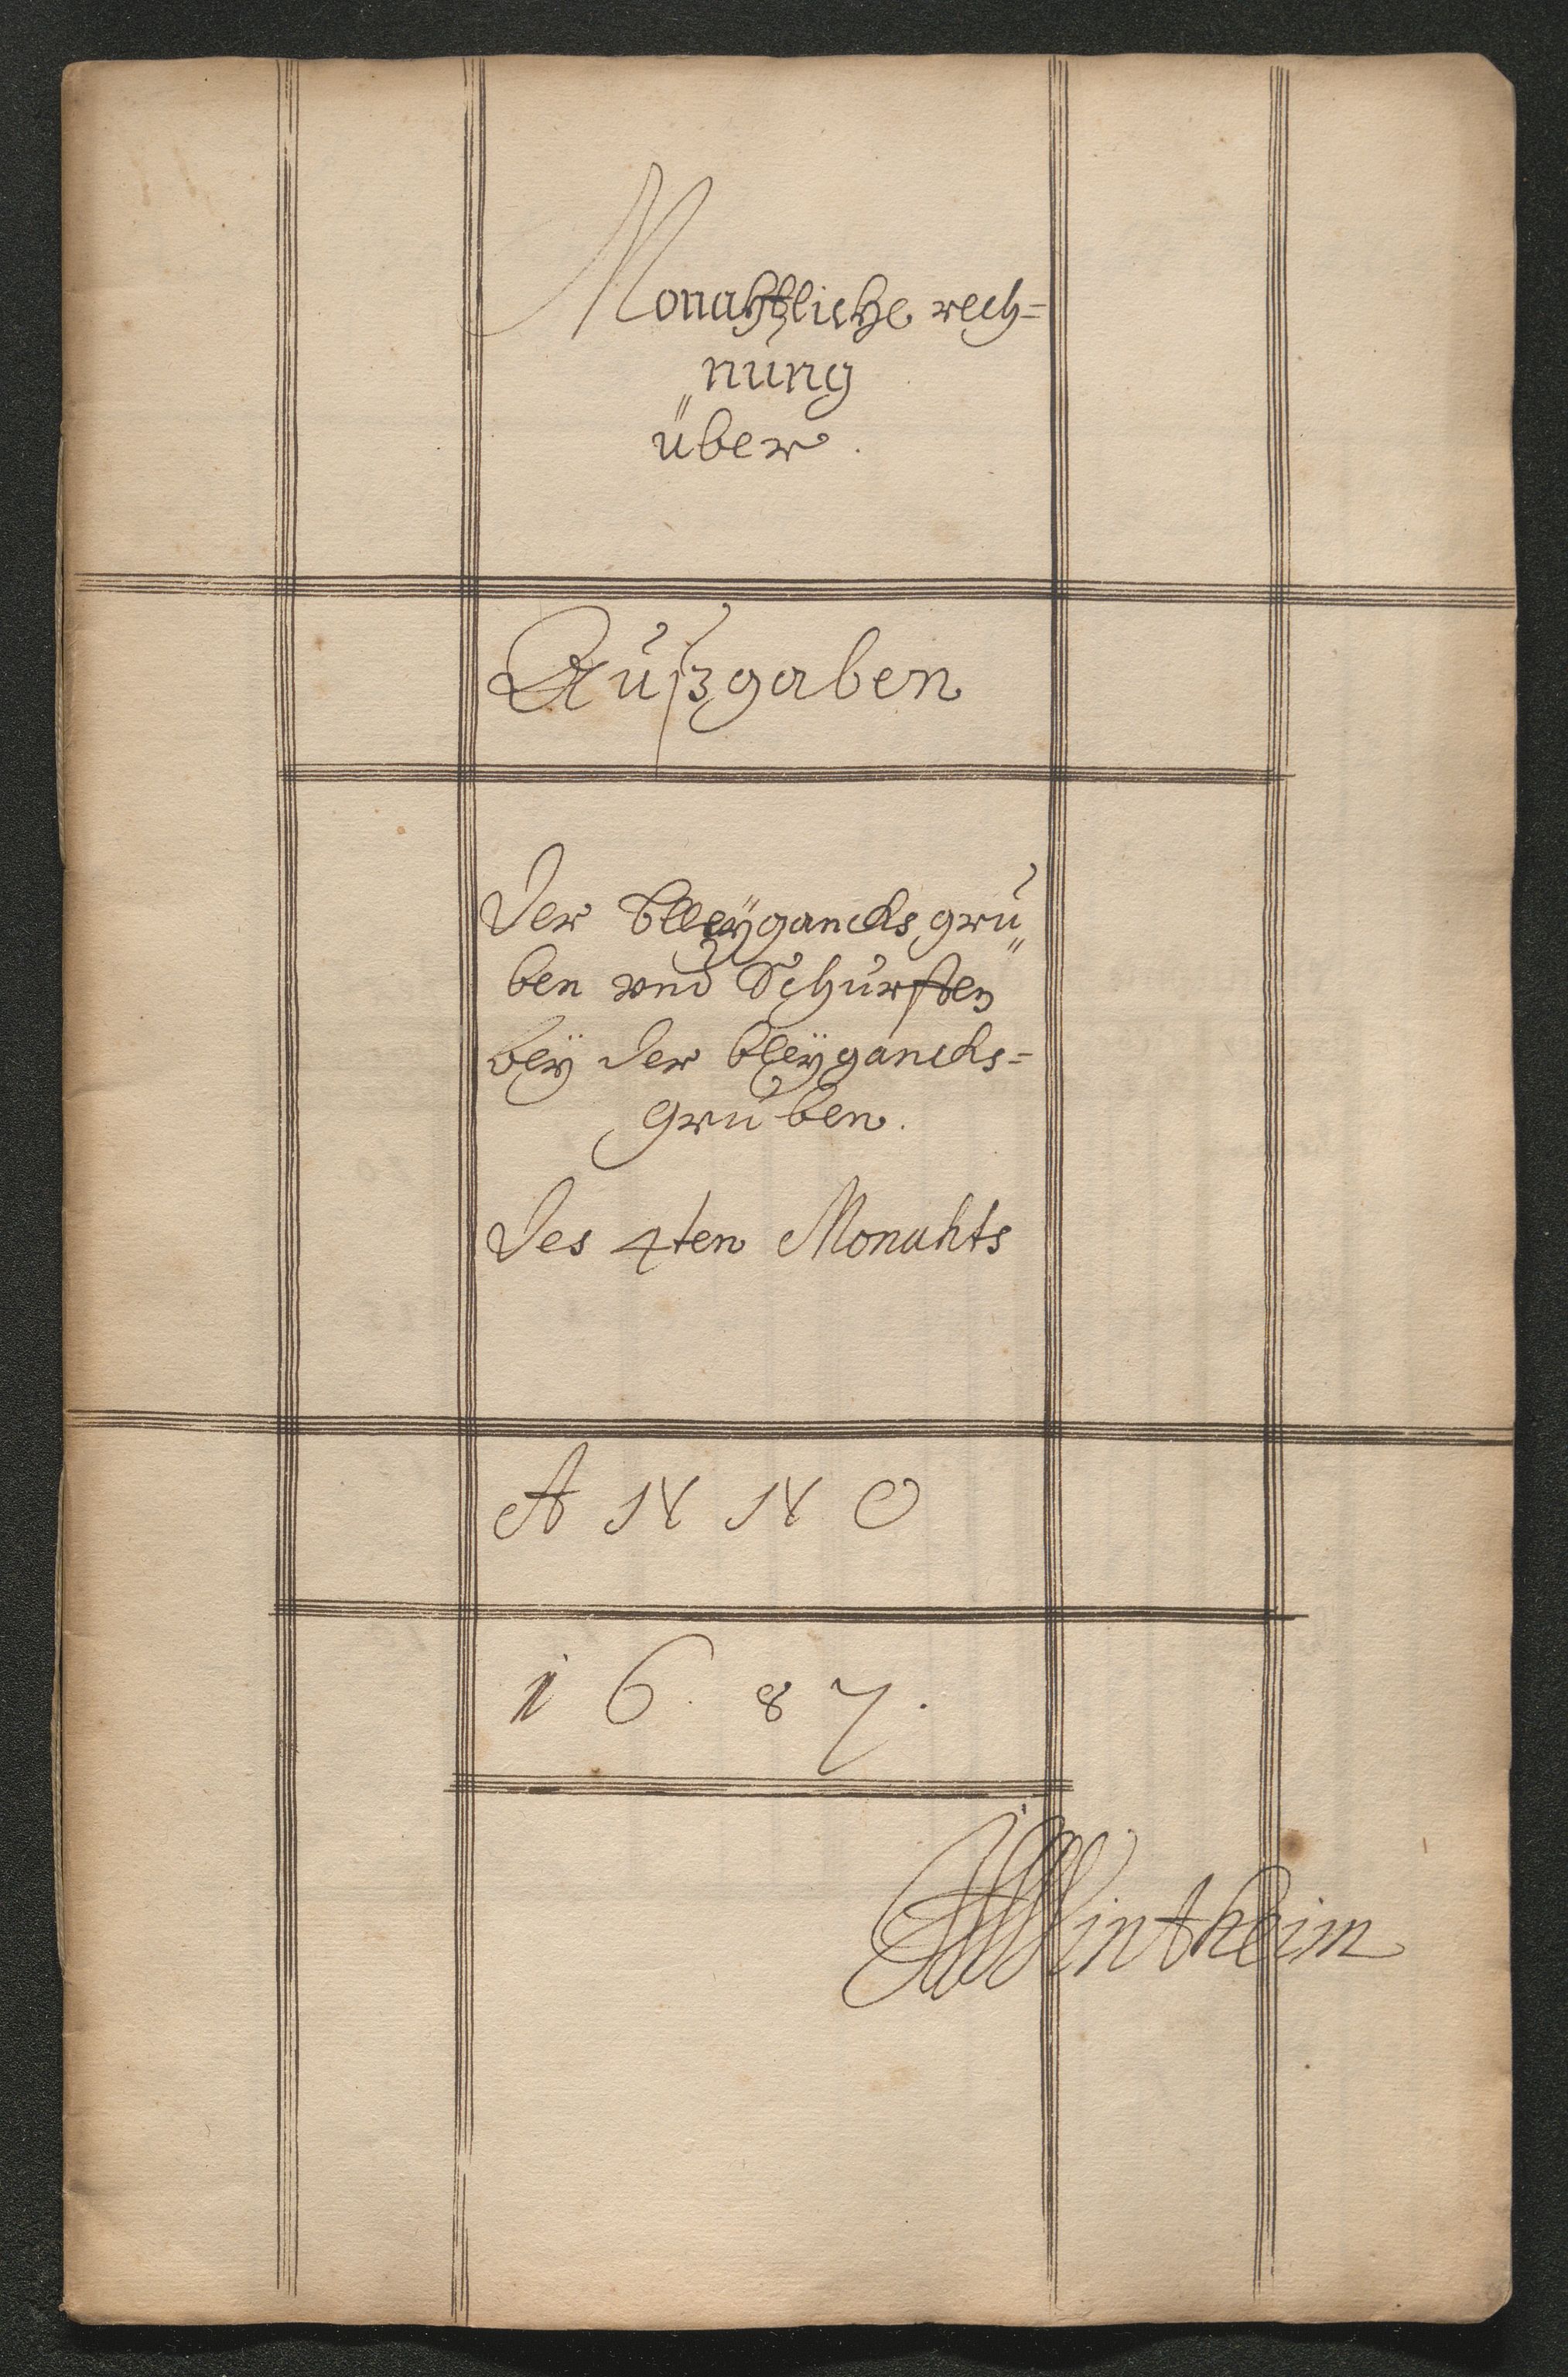 Monahtliche rech=
"nung
über.
Außgaben
der bleÿgancksgru"
ben vnd Schurften
beÿ der bleÿgancks=
gruben.
des 4ten Monahts
ANNO
1687.
Wintheim